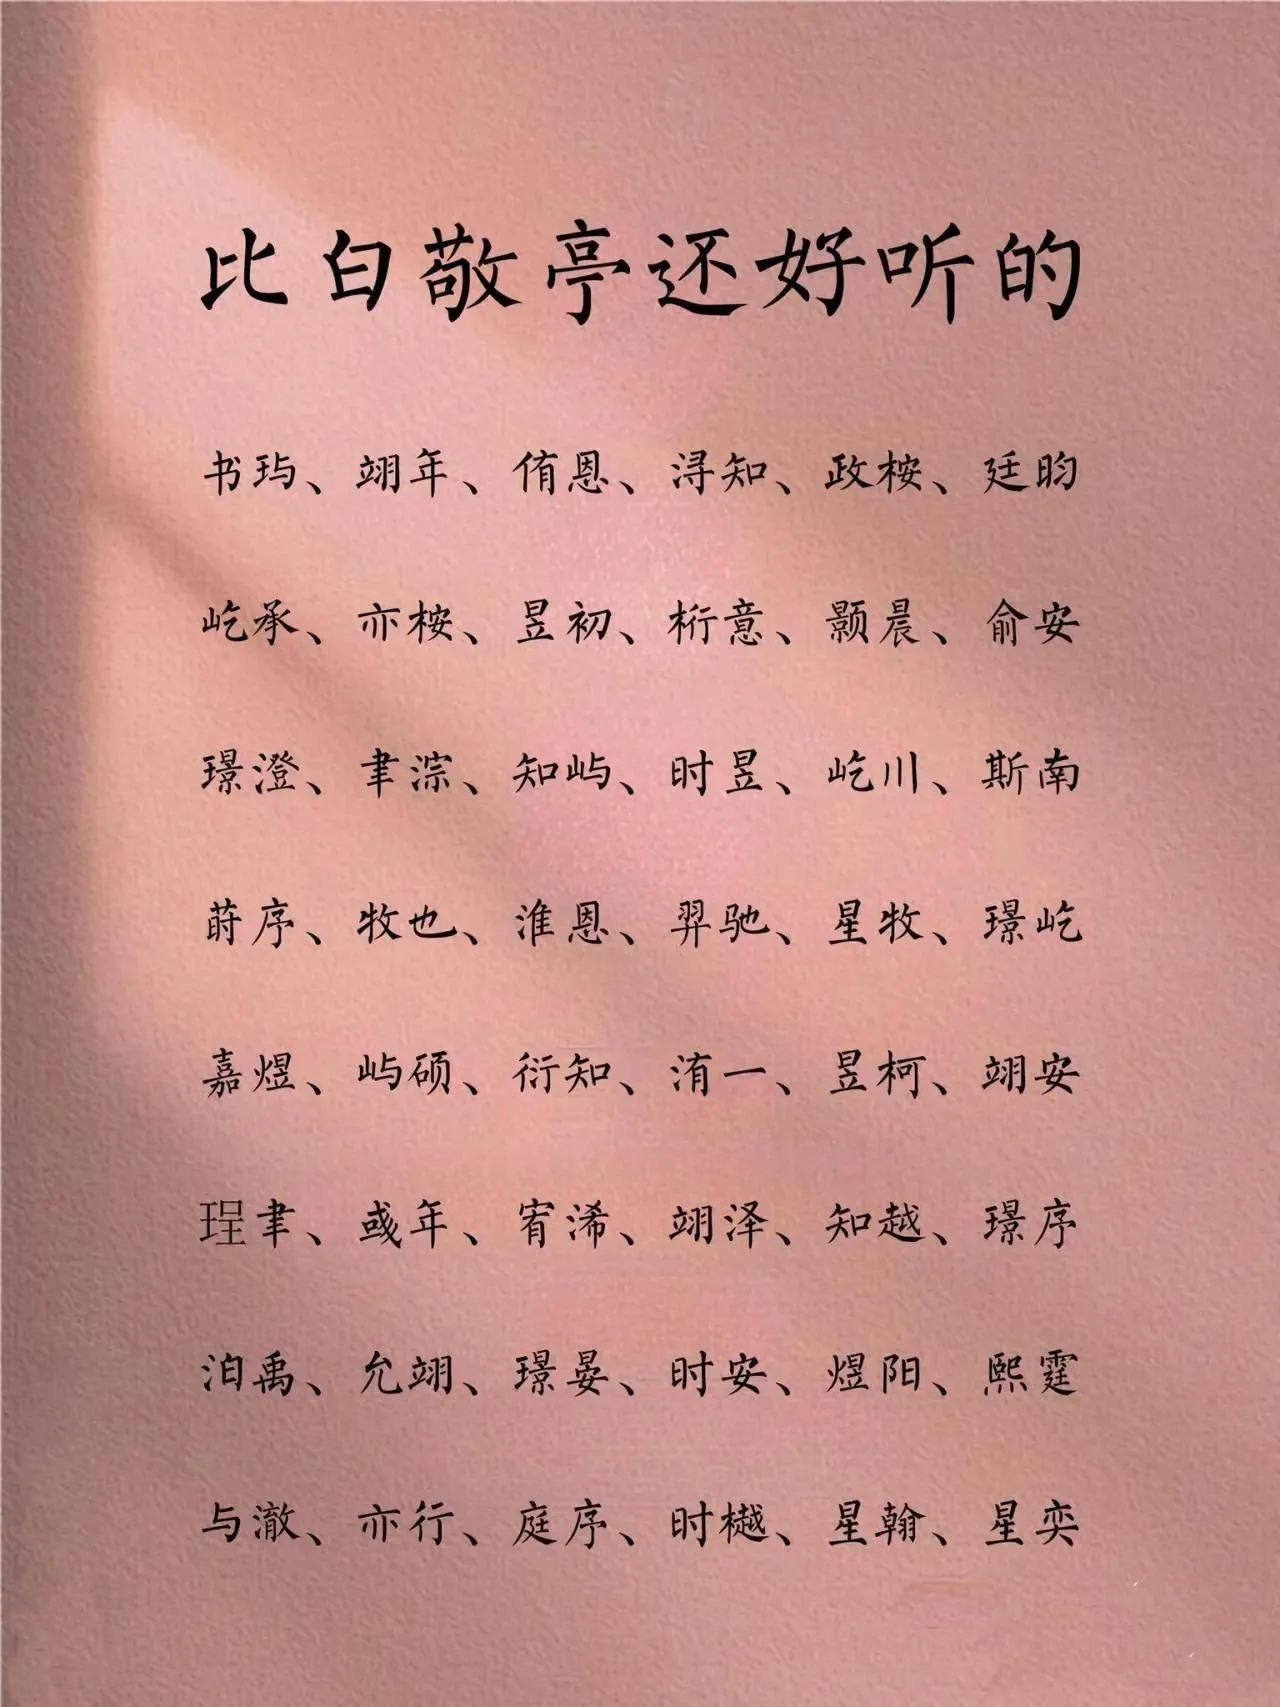 比白敬亭还好听的
书玙、翊年、侑恩、浔知、政桉、廷昀
屹承、亦桉、昱初、桁意、颢晨、俞安
璟澄、聿淙、知屿、时昱、屹川、斯南
莳序、牧也、淮恩、羿驰、星牧、璟屹
嘉煜、屿硕、衍知、洧一、昱柯、翊安
珵聿、彧年、宥浠、翊泽、知越、璟序
泊禹、允翊、璟晏、时安、煜阳、熙霆
与澈、亦行、庭序、时樾、星翰、星奕